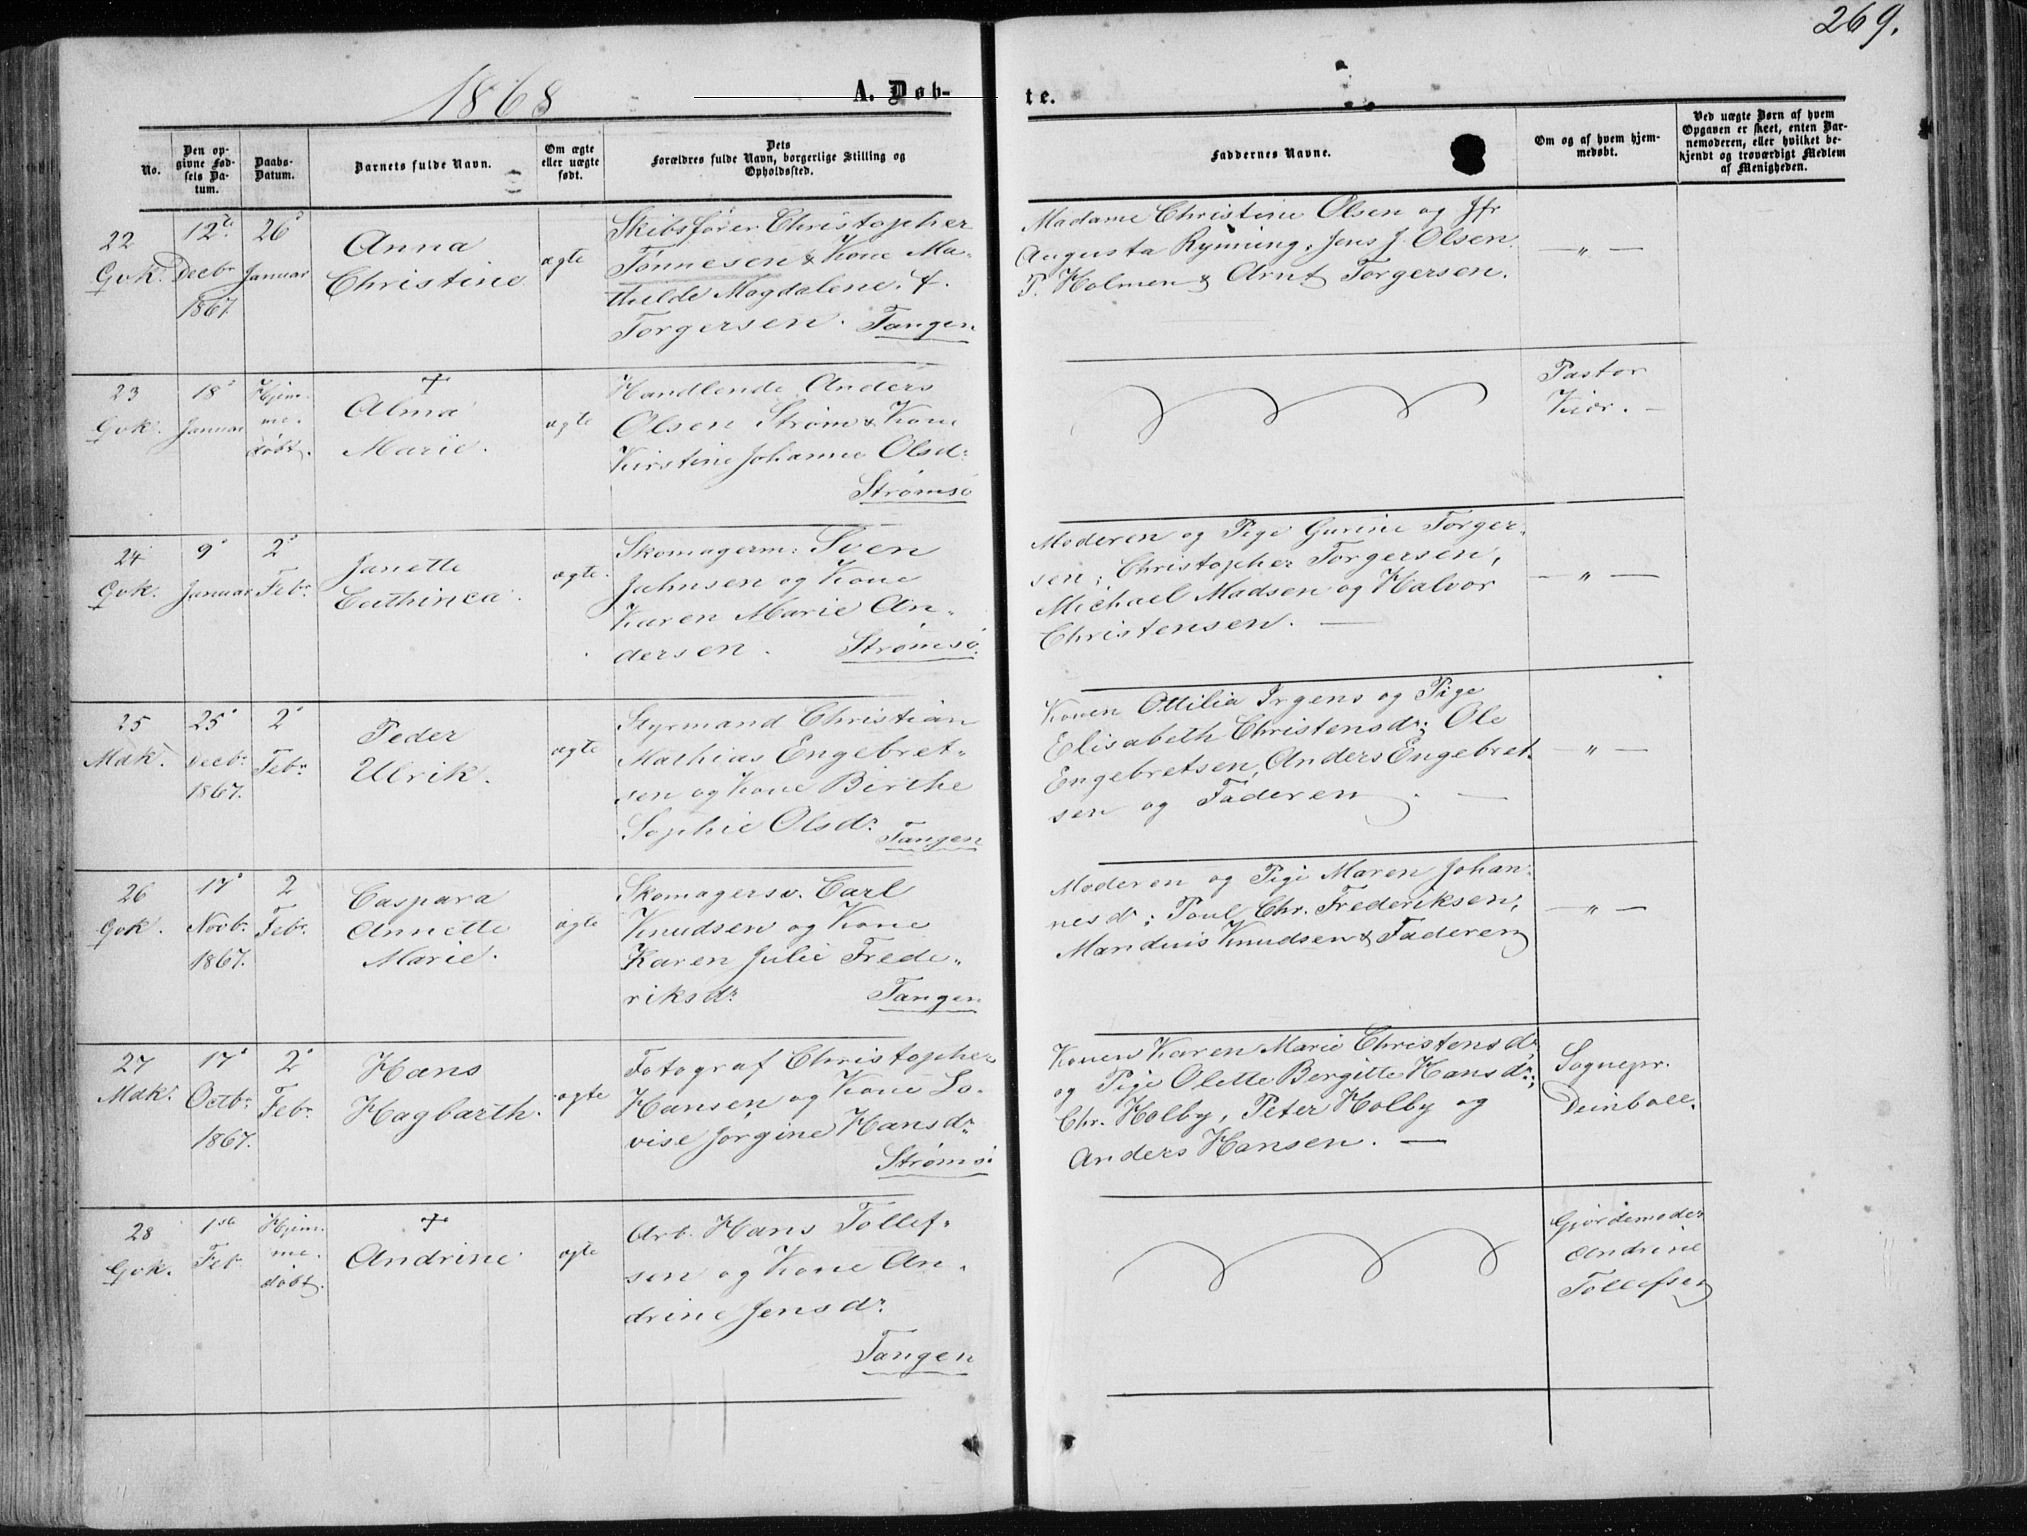 269.
1868
A. Døb-
te.
No.
Den op-
givne Fød-
sels Da-
tum.
Daabs-
Datum.
Barnets fulde Navn.
Om ægte
eller uægte
født.
Dets
Forældres fulde Navn, borgerlige Stilling og
Opholdssted.
Faddernes Navne.
Om og af hvem hjem-
medøbt.
Ved uægte Børn af hvem
Opgaven er skeet, enten Bar-
nemoderen, eller hvilket be-
kjendt og troværdigt Medlem
af Menigheden.
22
Qvk.
12te
Decbr
1867.
26'
Januar
Anna
Christine
ægte
Skibsfører Christopher
Tønnesen & Kone Ma-
thilde Magdalene, f.
Torgersen. Tangen
Madame Christine Olsen og Jfr
Augusta Rynning, Jens J. Olsen.
P. Holmen & Arnt Torgersen.
— „ —
23
Qvk.
18'
Januar
Hjem-
me-
døbt.
+
Alma
Marie.
ægte
Handlende Anders
Olsen Strøm & Kone
Kirstine Johanne Olsdr
Strømsø
Pastor
Kiær. —
24
Qvk.
9'
Januar
2'
Febr.
Janette
Cathinca.
ægte.
Skomagerm: Sven
Jahnsen og Kone
Karen Marie An-
dersen. Strømsø.
Moderen og Pige Gurine Torger-
sen; Christopher Torgersen,
Michael Madsen og Halvor
Christensen. —
— „ —
25
Mak.
25'
Decbr.
1867.
2'
Febr.
Peder
Ulrik.
ægte
Styrmand Christian
Mathias Engebret-
sen og Kone Birthe
Sophie Olsdr. Tangen
Konen Ottilia Irgens og Pige
Elisabeth Christensdr; Ole
Engebretsen, Anders Engebret-
sen og Faderen. —
— „ —
26
Qvk.
17'
Novbr.
1867.
2
Febr.
Caspara
Annette
Marie.
ægte
Skomagersv. Carl
Knudsen og Kone
Karen Julie Frede-
riksdr. Tangen
Moderen og Pige Maren Johan-
nesdr; Poul Chr. Frederiksen,
Knudsen & Faderen
— „ —
27
Mak.
17'
Octbr.
1867.
2'
Febr.
Hans
Hagbarth.
ægte
Fotograf Christopher
Hansen og Kone Lo-
vise Jørgine Hansdr.
Strømsø
Konen Karen Marie Christensdr
og Pige Olette Bergitte Hansdr;
Chr. Holby, Peter Holby og
Anders Hansen. —
Sognepr.
Deinboll.
28
Qvk.
1ste
Febr
Hjem-
me-
døbt.
+
Andrine
ægte
Arb. Hans Tollef-
sen og Kone An-
drine Jensdr.
Tangen
Gjordemoder
Andrine
Tollefsen